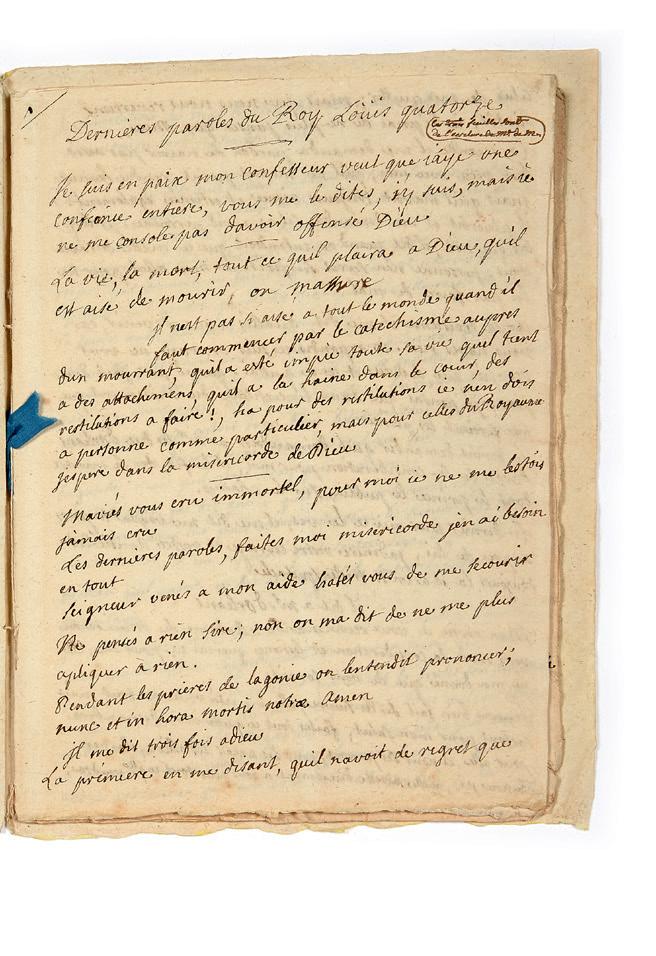 Dernieres paroles du Roy Louis quatorze
Ces trois feuilles sont
de l'ecriture de
Je suis en paix mon confesseur veut que iaye une
confience entiere, vous me le dites, iy suis, mais ie
ne me console pas davoir offensé Dieu
La vie, la mort, tout ce quil plaira a Dieu, quil
est aisé de mourir, on massure
Il nest pas si aisé a tout le monde quand il
faut commencer par le catechisme aupres
dun mourrant, quil a esté impie toute sa vie quil tient
a des attachemens, quil a la haine dans le coeur, des
restitutions a faire!, ha pour des restitutions ie nen dois
a personne comme particulier, mais pour celles du Royaume
jespere dans la misericorde de Dieu
Maviés vous cru immortel, pour moi ie ne me lestois
jamais cru
Les dernieres paroles, faites moi misericorde jen ai besoin
en tout
Seigneur venés a mon aide hatés vous de me secourir
Ne pensés a rien sire; non on ma dit de ne me plus
apliquer a rien.
Pendant les prieres de lagonie on lentendit prononcer;
nunc et in hora mortis notræ amen
Il me dit trois fois adieu
La premiere en me disant, quil navoit de regret que